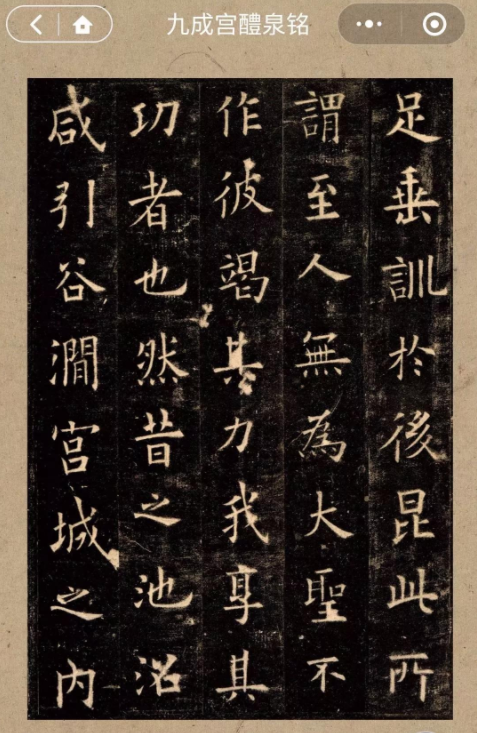 九成宫醴泉铭
足垂訓於後昆此所
謂至人無為大聖不
作彼竭其力我享其
功者也然昔之池沼
咸引谷澗宮城之内